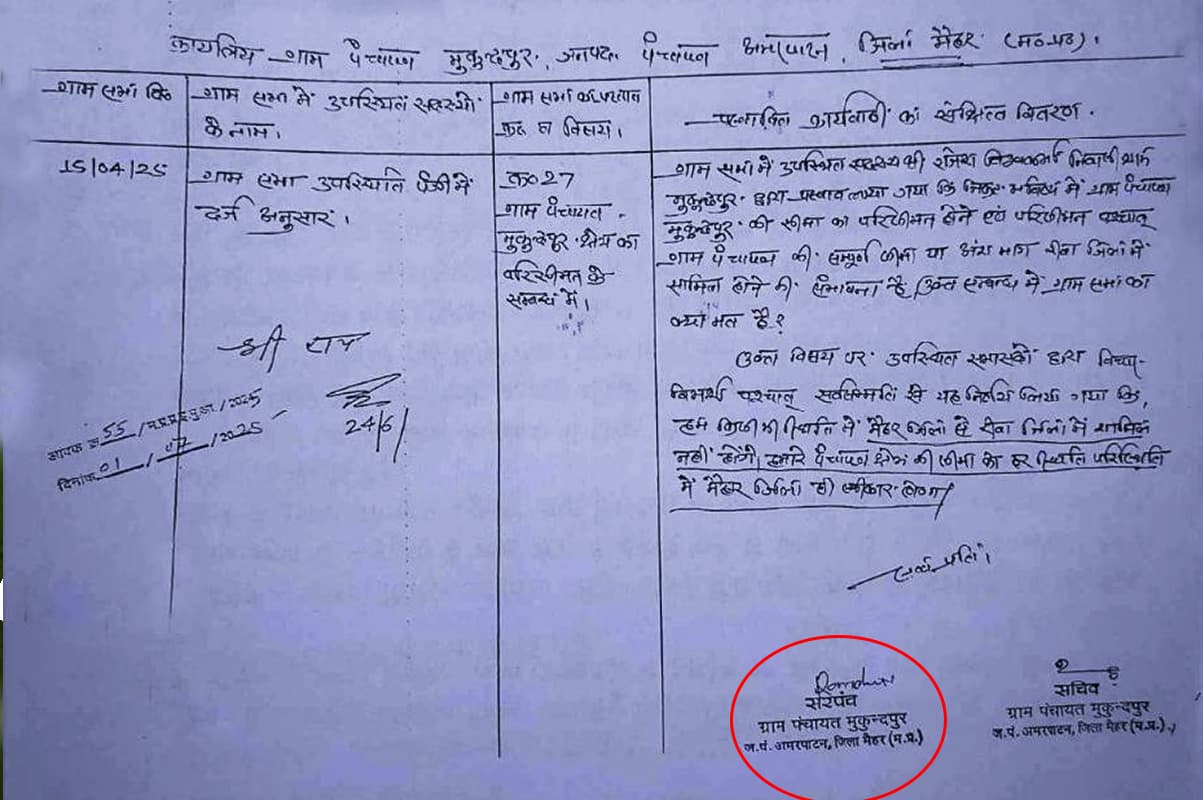 कार्यालय ग्राम पंचायत मुकुन्दपुर, जनपद पंचायत अमरपाटन, जिला मैहर (म०प्र०).
ग्राम सभा दि०
ग्राम सभा में उपस्थित सदस्यों
के नाम।
ग्राम सभा का प्रस्ताव
क्र० व विषय।
कार्यवाही का संक्षिप्त विवरण.
15/04/25
ग्राम सभा उपस्थिति पंजी में
दर्ज अनुसार.
क्र०27
ग्राम पंचायत
मुकुन्दपुर क्षेत्र का
परिसीमन के
सम्बन्ध में।
ग्राम सभा में उपस्थित सदस्य श्री राजेश विश्वकर्मा निवासी ग्राम
मुकुन्दपुर द्वारा प्रस्ताव लाया गया कि निकट भविष्य में ग्राम पंचायत
मुकुन्दपुर की सीमा का परिसीमन होने एवं परिसीमन पश्चात्
ग्राम पंचायत की सम्पूर्ण सीमा या अंश भाग रीवा जिला में
सामिल होने की संभावना है, उक्त सम्बन्ध में ग्राम सभा का
क्या मत है?
उक्त विषय पर उपस्थित सभासदों द्वारा विचार-
विमर्श पश्चात् सर्वसम्मति से यह निर्णय लिया गया कि,
हम किसी भी स्थिति में मैहर जिला से रीवा जिला में शामिल
नहीं होंगे, हमारे पंचायत क्षेत्र की सीमा को हर स्थिति परिस्थिति
में मैहर जिला ही स्वीकार होगा/
श्री राम
24/6/
आवक क्र 55 /2025
दिनांक 01 / 07 / 2025
सत्य प्रति।
सरपंच
ग्राम पंचायत मुकुन्दपुर
ज.पं. अमरपाटन, जिला मैहर (म.प्र.)
सचिव
ग्राम पंचायत मुकुन्दपुर
ज.पं. अमरपाटन, जिला मैहर (म.प्र.)